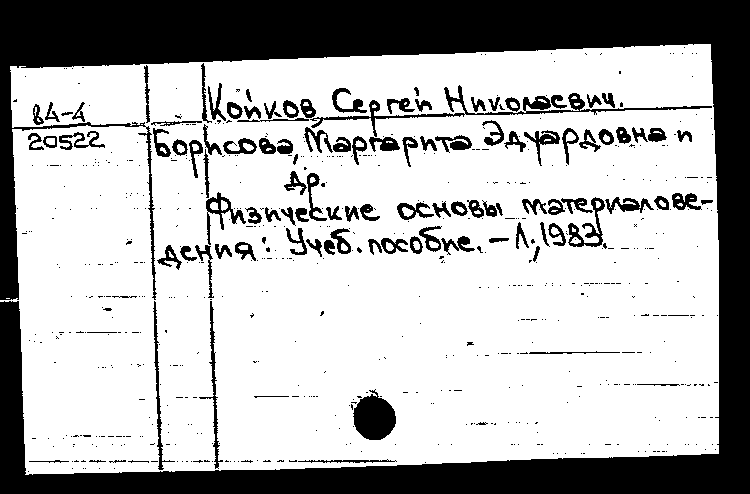 84-4
20522
Койков, Сергей Николаевич.
Борисова, Маргарита Эдуардовна и
др.
Физические основы материалове-
дения: Учеб. пособие. - Л., 1983.